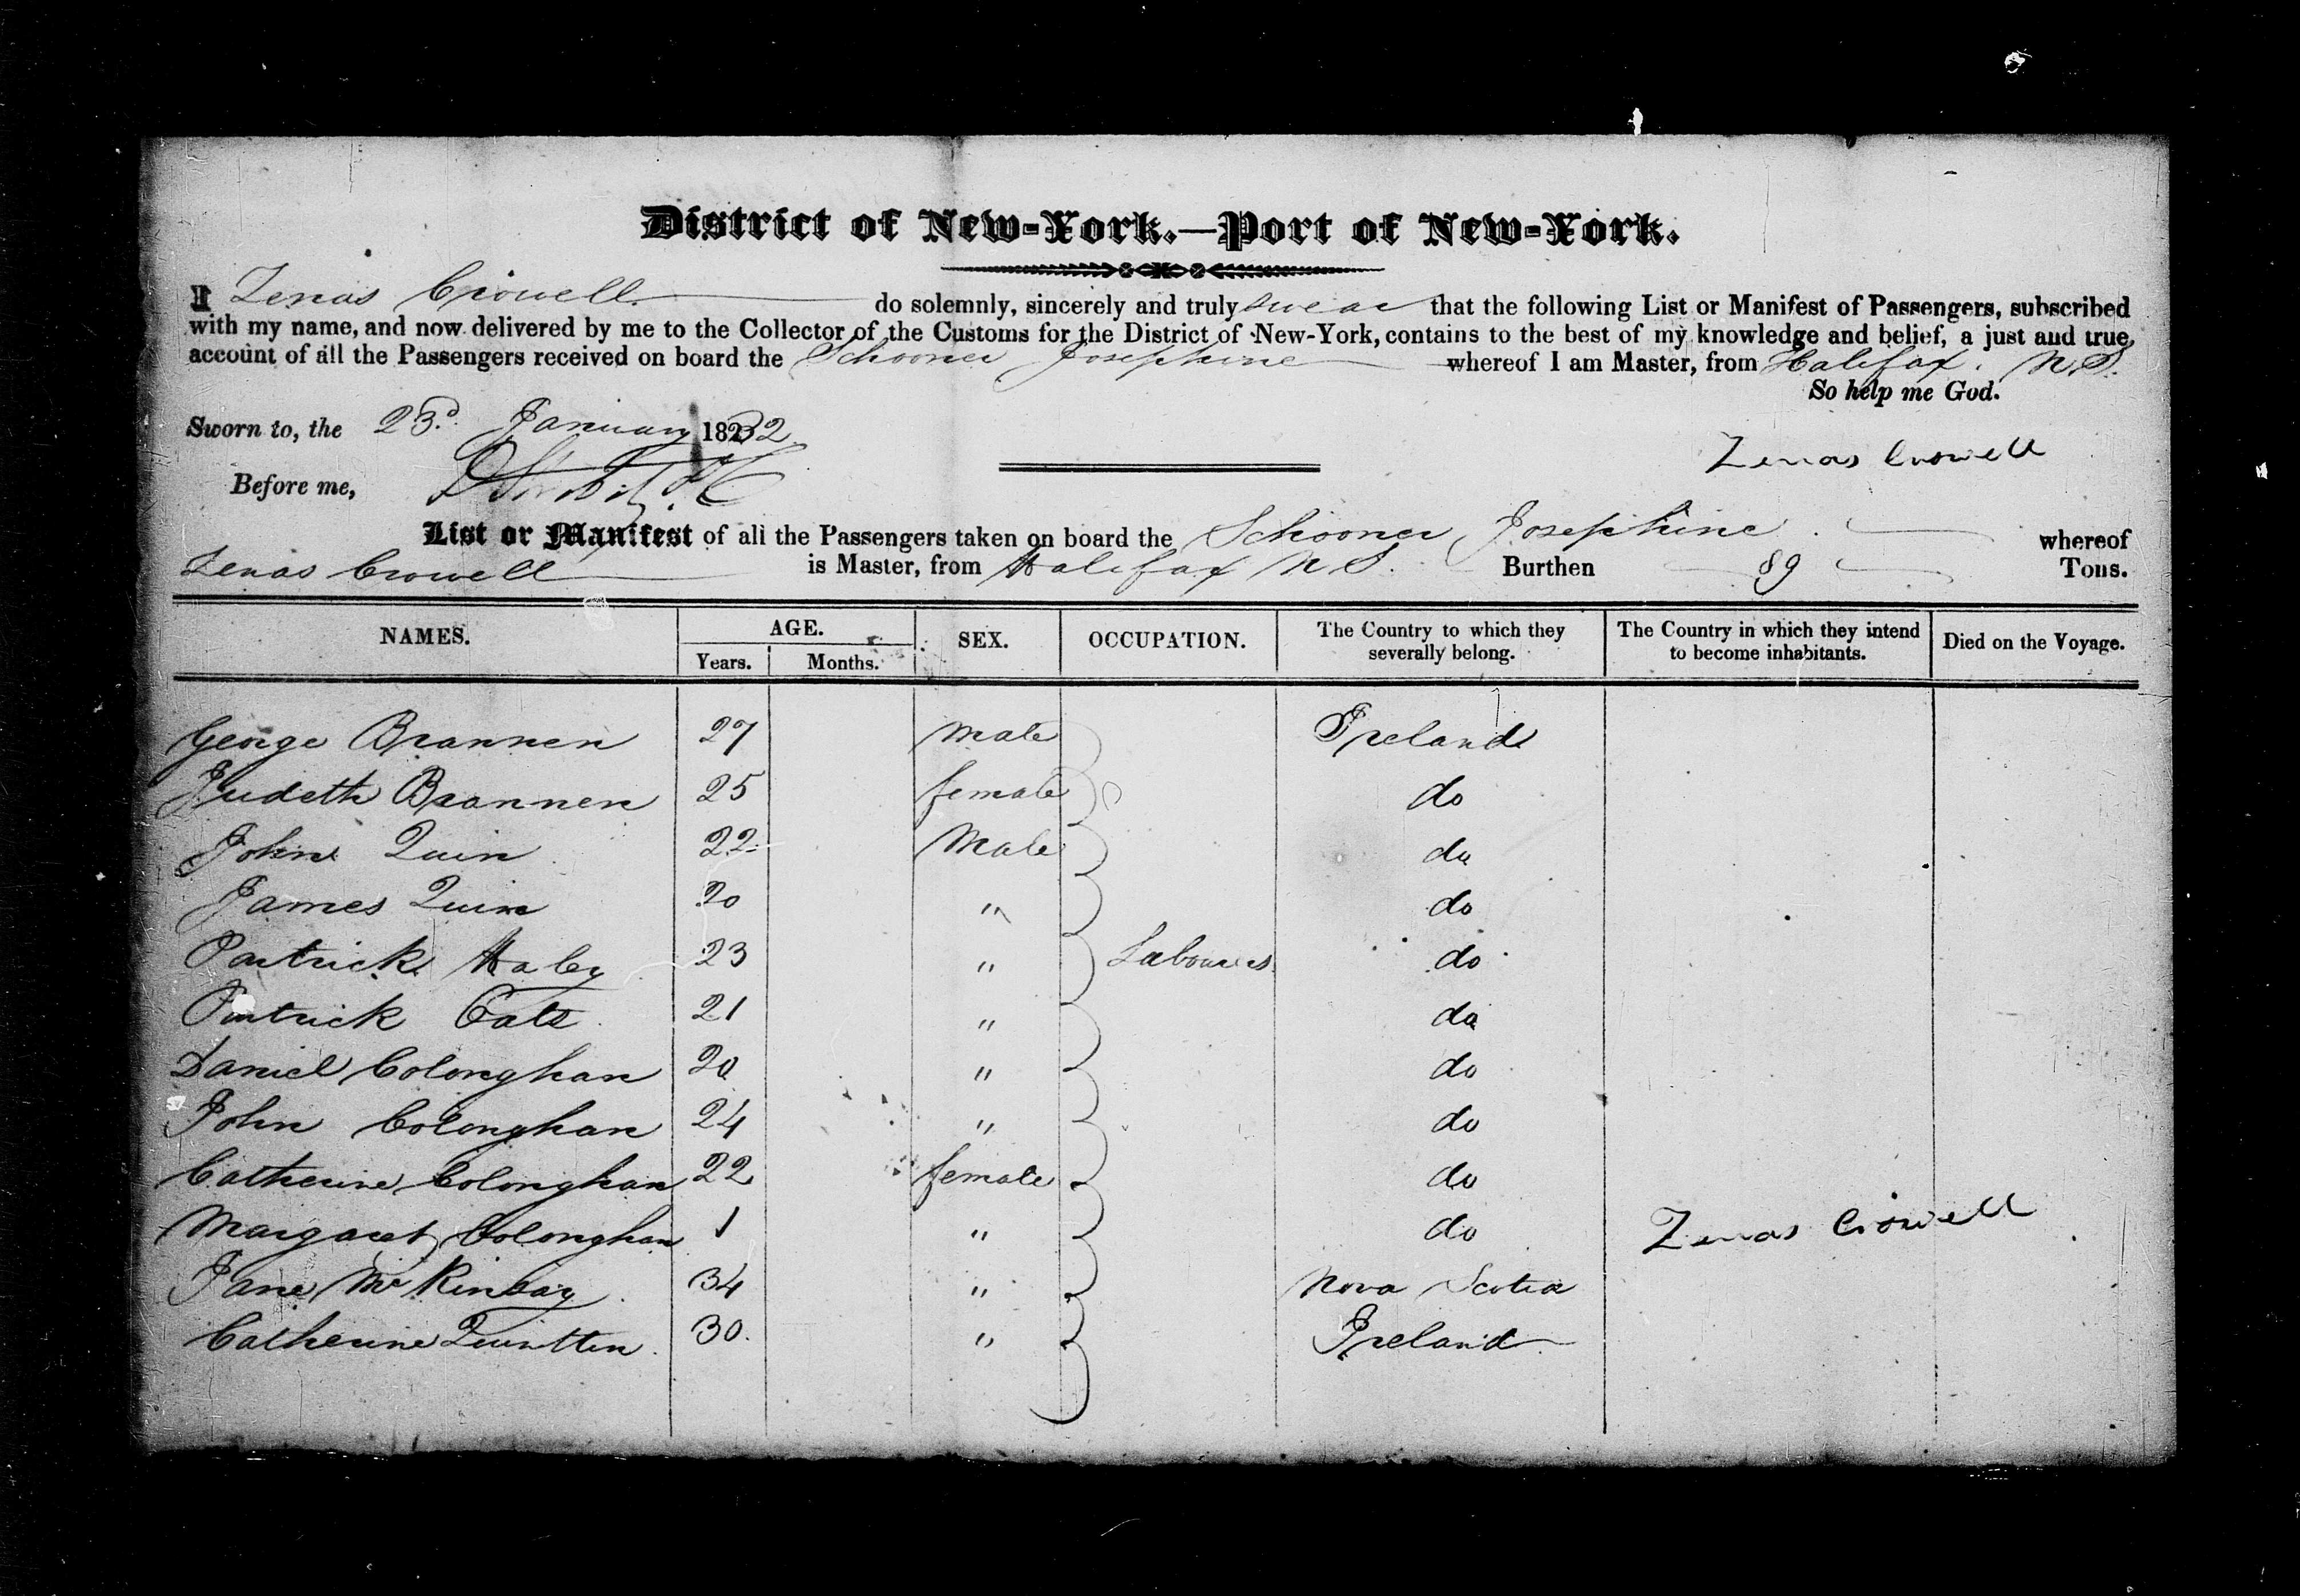 District of New-York.—Port of New-York.
I Zenas Crowell do solemnly, sincerely and truly swear that the following List or Manifest of Passengers, subscribed
with my name, and now delivered by me to the Collector of the Customs for the District of New-York, contains to the best of my knowledge and belief, a just and true,
account of all the Passengers received on board the Schooner Josephine whereof I am Master, from Halifax. N.S.
So help me God.
Sworn to, the 23d. January 1832
Zenas Crowell
Before me,
List or Manifest of all the Passengers taken on board the Schooner Josephine whereof
Zenas Crowell is Master, from Halifax N S. Burthen 89 Tons.
NAMES. AGE. SEX. OCCUPATION. The Country to which they severally belong. The Country in which they intend to become inhabitants. Died on the Voyage.
Years. Months.
George Brannen 27 Male Ireland
Judeth Brannen 25 female do
John Quin 22 Male do
James Quin 20 " do
Patrick Haley 23 " Labourers do
Patrick Cats 21 " do
Daniel Colonghan 20 " do
John Colonghan 24 " do
Catherine Colonghan 22 female do
Margaret Colonghan 1 " do Zenas Crowell
Jane 34 " Nova Scotia
Catherine 30. " Ireland